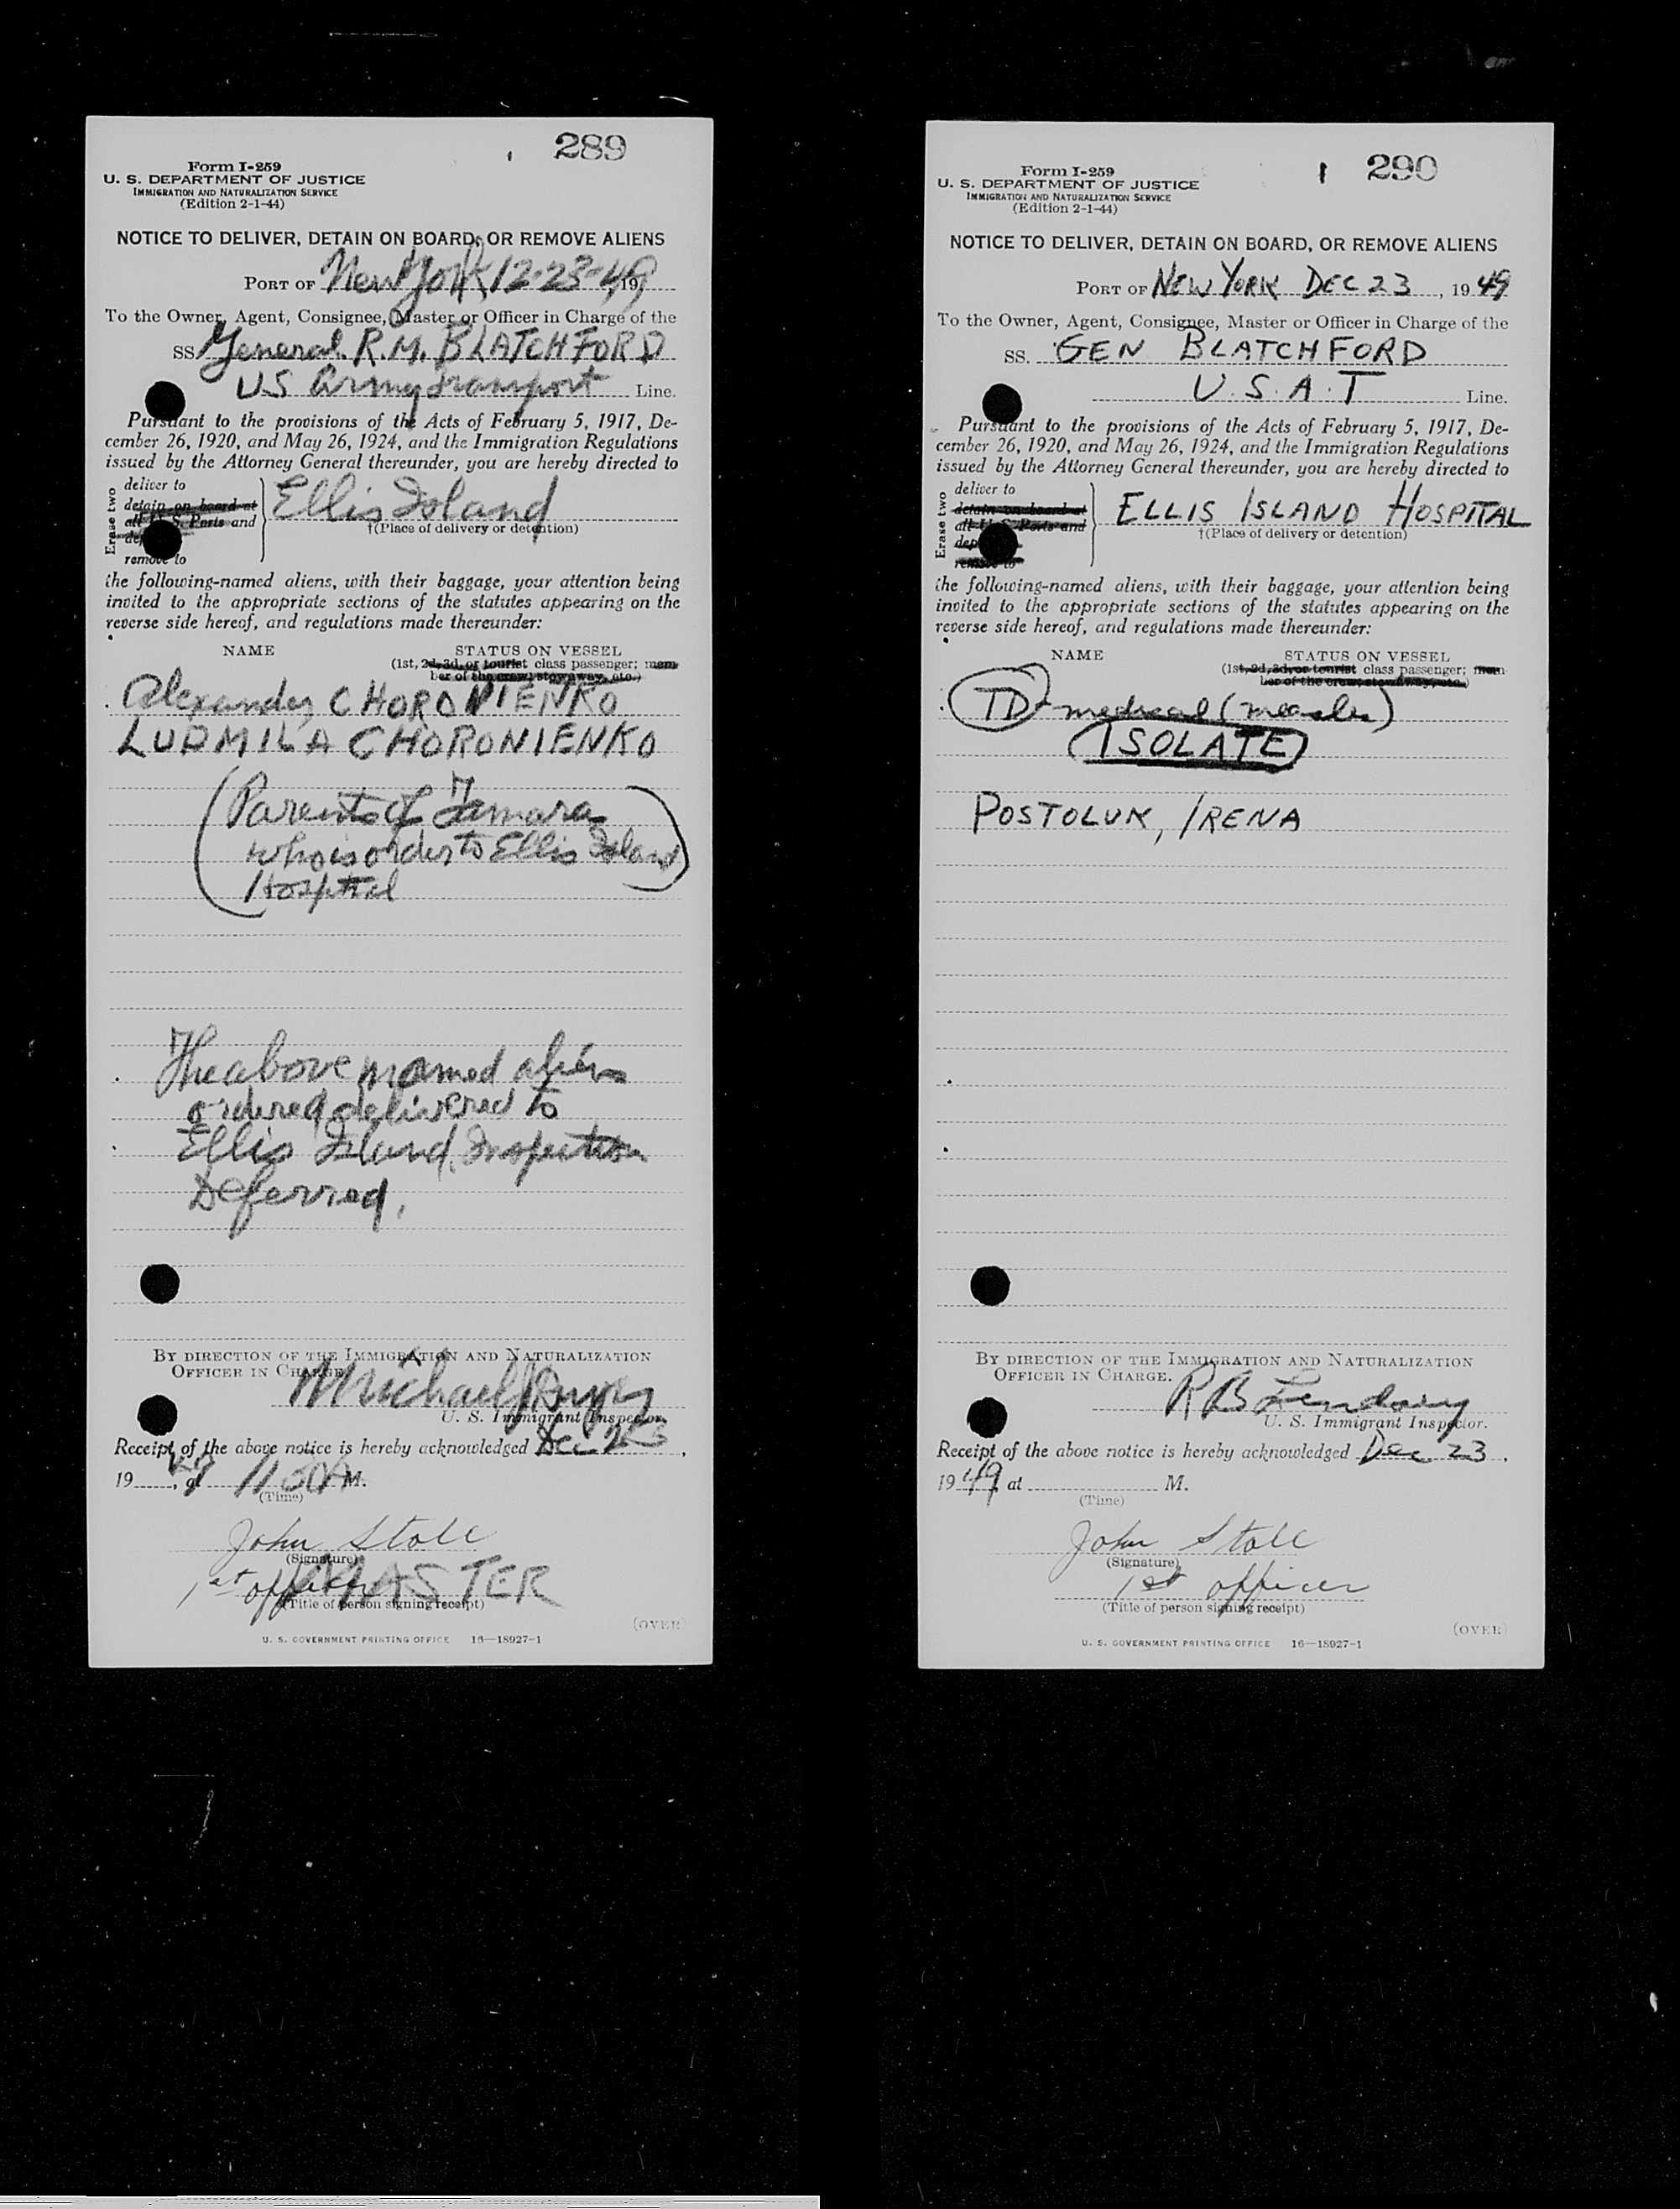 289
Form I-259
U. S. DEPARTMENT OF JUSTICE
IMMIGRATION AND NATURALIZATION SERVICE
(Edition 2-1-44)
NOTICE TO DELIVER, DETAIN ON BOARD, OR REMOVE ALIENS
PORT OF New York 12-23-49, 19
To the Owner, Agent, Consignee, Master or Officer in Charge of the
SS General R.M. BLATCHFORD
US Army Transport Line.
Pursuant to the provisions of the Acts of February 5, 1917, De-
cember 26, 1920, and May 26, 1924, and the Immigration Regulations
issued by the Attorney General thereunder, you are hereby directed to
Erase two
deliver to
detain on board at
all U. S. Ports and
remove to
Ellis Island
†(Place of delivery or detention)
the following-named aliens, with their baggage, your attention being
invited to the appropriate sections of the statutes appearing on the
reverse side hereof, and regulations made thereunder:
NAME STATUS ON VESSEL
(1st, 2d, 3d, or tourist class passenger; mem-
ber of the crew; stowaway, etc.)
Alexander CHORONIENKO
LUDMILA CHORONIENKO
(Parents of Tamara
who is order to Ellis Island
Hospital)
The above named aliens
ordered delivered to
Ellis Island. Inspection
Deferred.
BY DIRECTION OF THE IMMIGRATION AND NATURALIZATION
OFFICER IN CHARGE.
Michael
U. S. Immigrant Inspector.
Receipt of the above notice is hereby acknowledged Dec 23,
19 49, at 11 50 A M.
(Time)
John Stoll
(Signature)
1st officer MASTER
(Title of person signing receipt)
(OVER)
U. S. GOVERNMENT PRINTING OFFICE 16—18927-1
290
Form I-259
U. S. DEPARTMENT OF JUSTICE
IMMIGRATION AND NATURALIZATION SERVICE
(Edition 2-1-44)
NOTICE TO DELIVER, DETAIN ON BOARD, OR REMOVE ALIENS
PORT OF NEW YORK DEC 23, 19 49
To the Owner, Agent, Consignee, Master or Officer in Charge of the
SS. GEN BLATCHFORD
U.S.A.T Line.
Pursuant to the provisions of the Acts of February 5, 1917, De-
cember 26, 1920, and May 26, 1924, and the Immigration Regulations
issued by the Attorney General thereunder, you are hereby directed to
Erase two
deliver to
detain on board at
all U. S. Ports and
remove to
ELLIS ISLAND HOSPITAL
†(Place of delivery or detention)
the following-named aliens, with their baggage, your attention being
invited to the appropriate sections of the statutes appearing on the
reverse side hereof, and regulations made thereunder:
NAME STATUS ON VESSEL
(1st, 2d, 3d, or tourist class passenger; mem-
ber of the crew; stowaway, etc.)
TD - medical (measles)
ISOLATE
POSTOLUK, IRENA
BY DIRECTION OF THE IMMIGRATION AND NATURALIZATION
OFFICER IN CHARGE.
R B
U. S. Immigrant Inspector.
Receipt of the above notice is hereby acknowledged Dec 23,
19 49, at M.
(Time)
John Stoll
(Signature)
1st officer
(Title of person signing receipt)
(OVER)
U. S. GOVERNMENT PRINTING OFFICE 16—18927-1